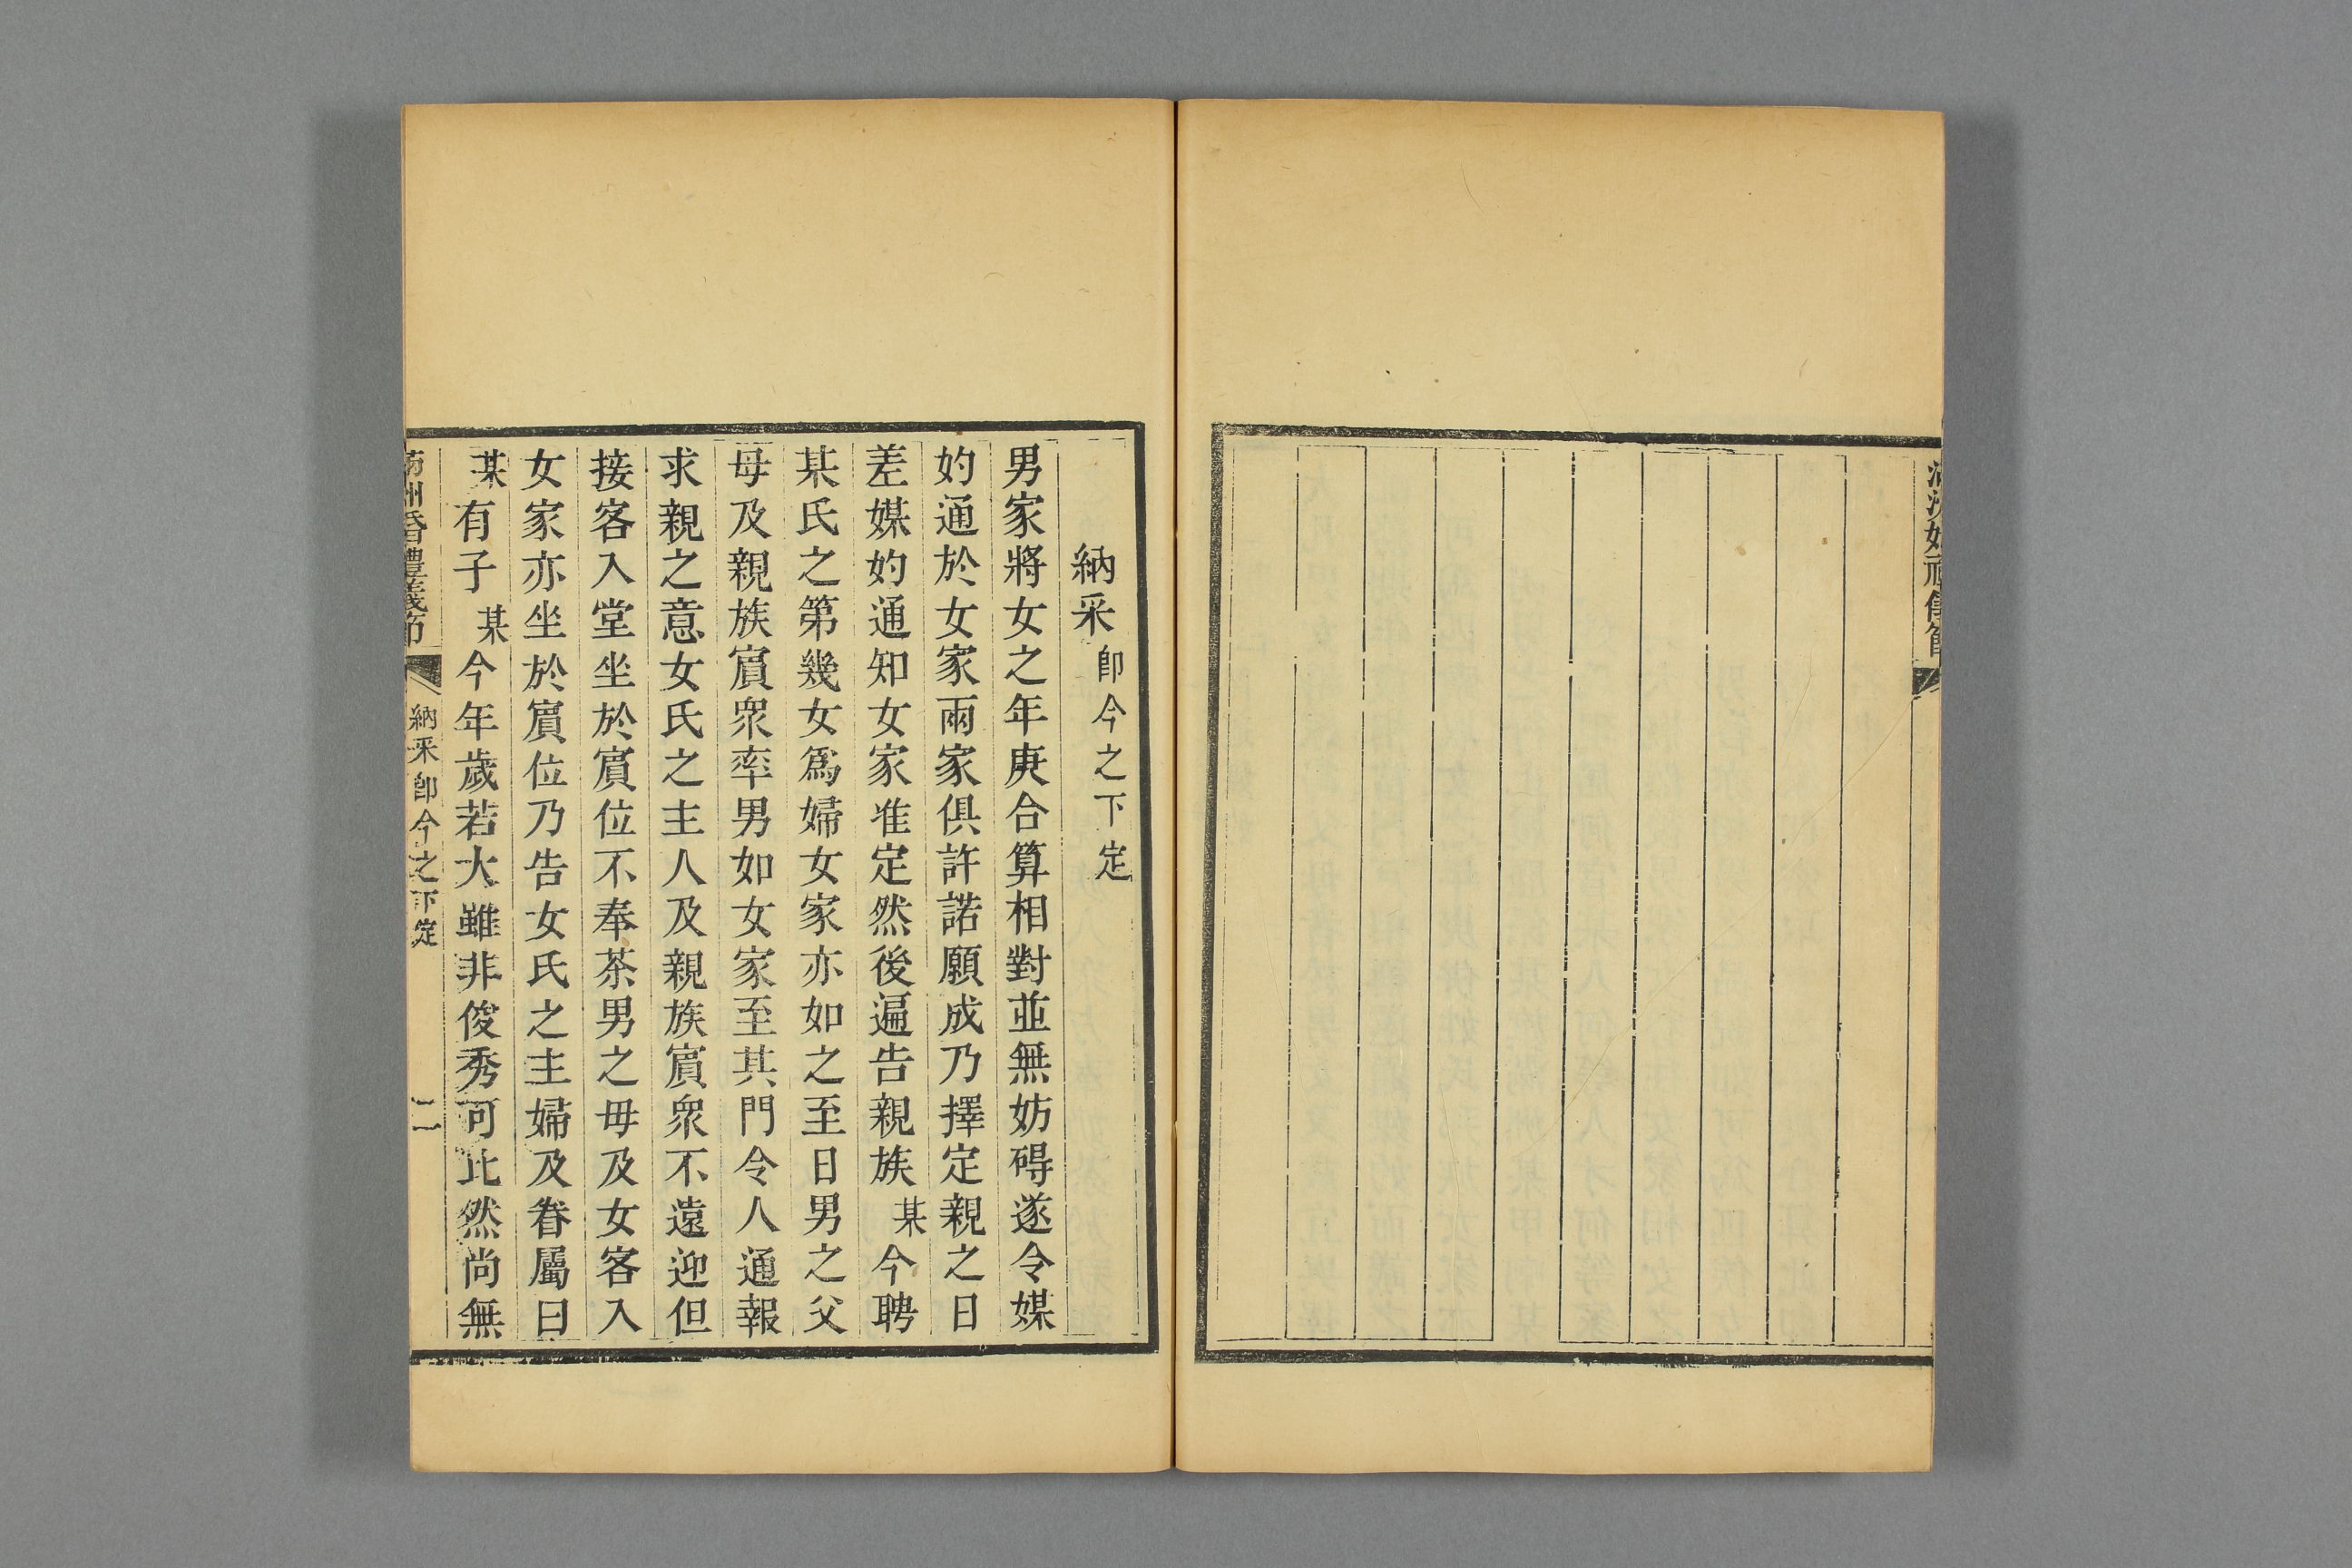 納采 卽今之下定
男家將女之年庚合算相對並無妨碍遂令媒
妁通於女家兩家俱許諾願成乃擇定親之日
差媒妁通知女家准定然後遍告親族某今聘
某氏之第幾女爲婦女家亦如之至日男之父
母及親族賔衆率男如女家至其門令人通報
求親之意女氏之主人及親族賔衆不遠迎但
接客入堂坐於賔位不奉茶男之母及女客入
女家亦坐於賔位乃告女氏之主婦及眷屬曰
某有子某今年歲若大雖非俊秀可比然尚無
州昏禮義節 納采卽今之下定 二